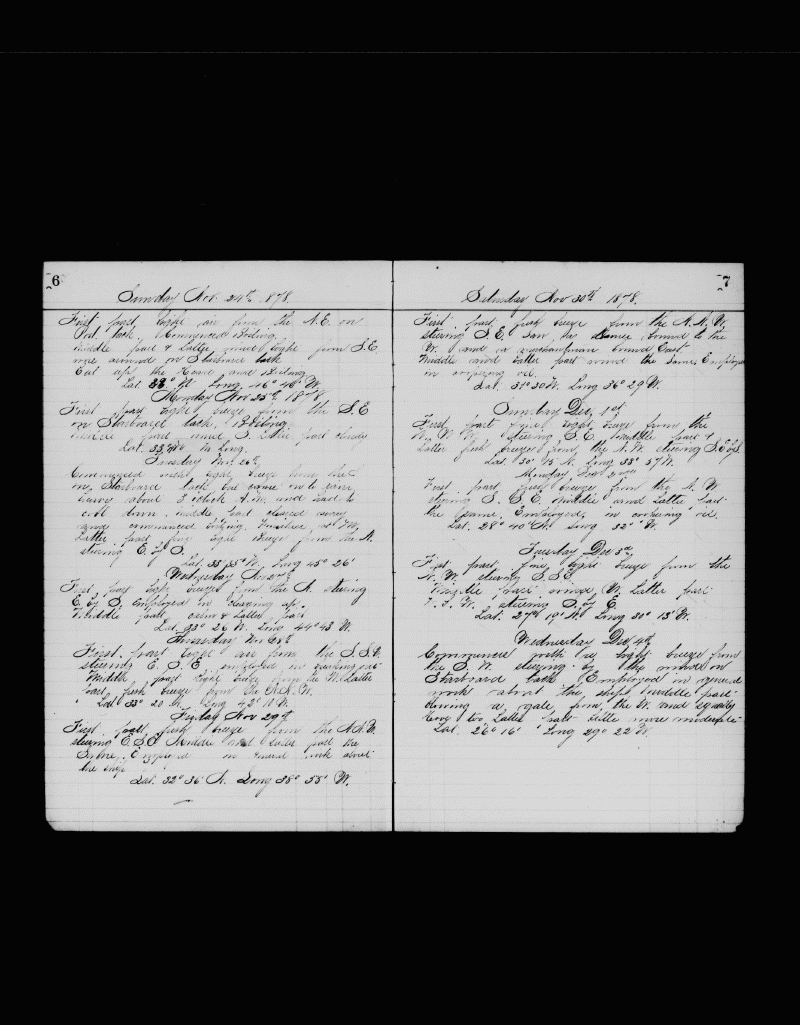 6
Sunday Nov. 24th 1878.
First part light air from the N.E. on
Port tack. Commenced Boiling.
Middle part & Latter part light from S.E
on Starboard tack
Cut up the head and
Lat. 33° N. Long. 46° 46' W.
Monday Nov 25th 1878
First part light breeze from the S.E
on Starboard tack. Boiling.
Middle part same Latter part
Lat. 33 N Long.
Tuesday Nov. 26th
Commenced with light breeze from the
on Starboard tack but came on to rain
about 3 o'clock A.M. and had to
cool down. Middle part cleared away
and commenced boiling.
Latter part fine light breeze from the N.
steering E. by S.
Lat. 33° 55' N. Long 45° 26'
Wednesday Nov 27th
First part light breeze from the N. steering
E. by S. Employed in clearing up.
Middle part calm & Latter part
Lat 33° 26 N. Long 44° 43 W.
Thursday Nov 28th
First part light air from the S.S.W.
steering E. S. E. employed in
Middle part light breeze from the W. Latter
part fresh breeze from the N.N.W.
Lat 33° 20 N. Long 42° 10 W.
Friday Nov 29th
First part fresh breeze from the N.N.W.
steering E.S.E Middle and Latter part the
Same. Employed in general work about
the ship
Lat. 32° 36' N. Long 38° 55' W.
7
Saturday Nov 30th 1878.
First part fresh breeze from the N.N.W.
steering S.E. Saw bound to the
W. and a merchantman bound East.
Middle and Latter part wind the same. Employed
in coopering oil.
Lat. 31° 30 N. Long 36° 29 W.
Sunday Dec. 1st
First part fine light breeze from the
W.N.W. steering S.E. Middle part &
Latter fresh breeze from the N.W. steering S.E by S.
Lat 30° 15 N. Long 33° 57 W.
Monday Dec 2nd
First part fresh breeze from the N. W
steering S. S. E. Middle and Latter part
the same. Employed in coopering oil.
Lat. 28° 40 N. Long 32° W.
Tuesday Dec 3rd
First part fine light breeze from the
N. W. steering S.S.E.
Middle part wind W. Latter part
W. S. W. steering S. by E.
Lat. 27° 19' N Long 30° 13' W.
Wednesday Dec 4th
Commenced with light breeze from
the S. W. steering by the wind on
Starboard tack. Employed in general
work about the ship. Middle part
blowing a gale from the W. and squally
hove too. Latter part little more moderate
Lat. 26° 16' Long 29° 22' W.